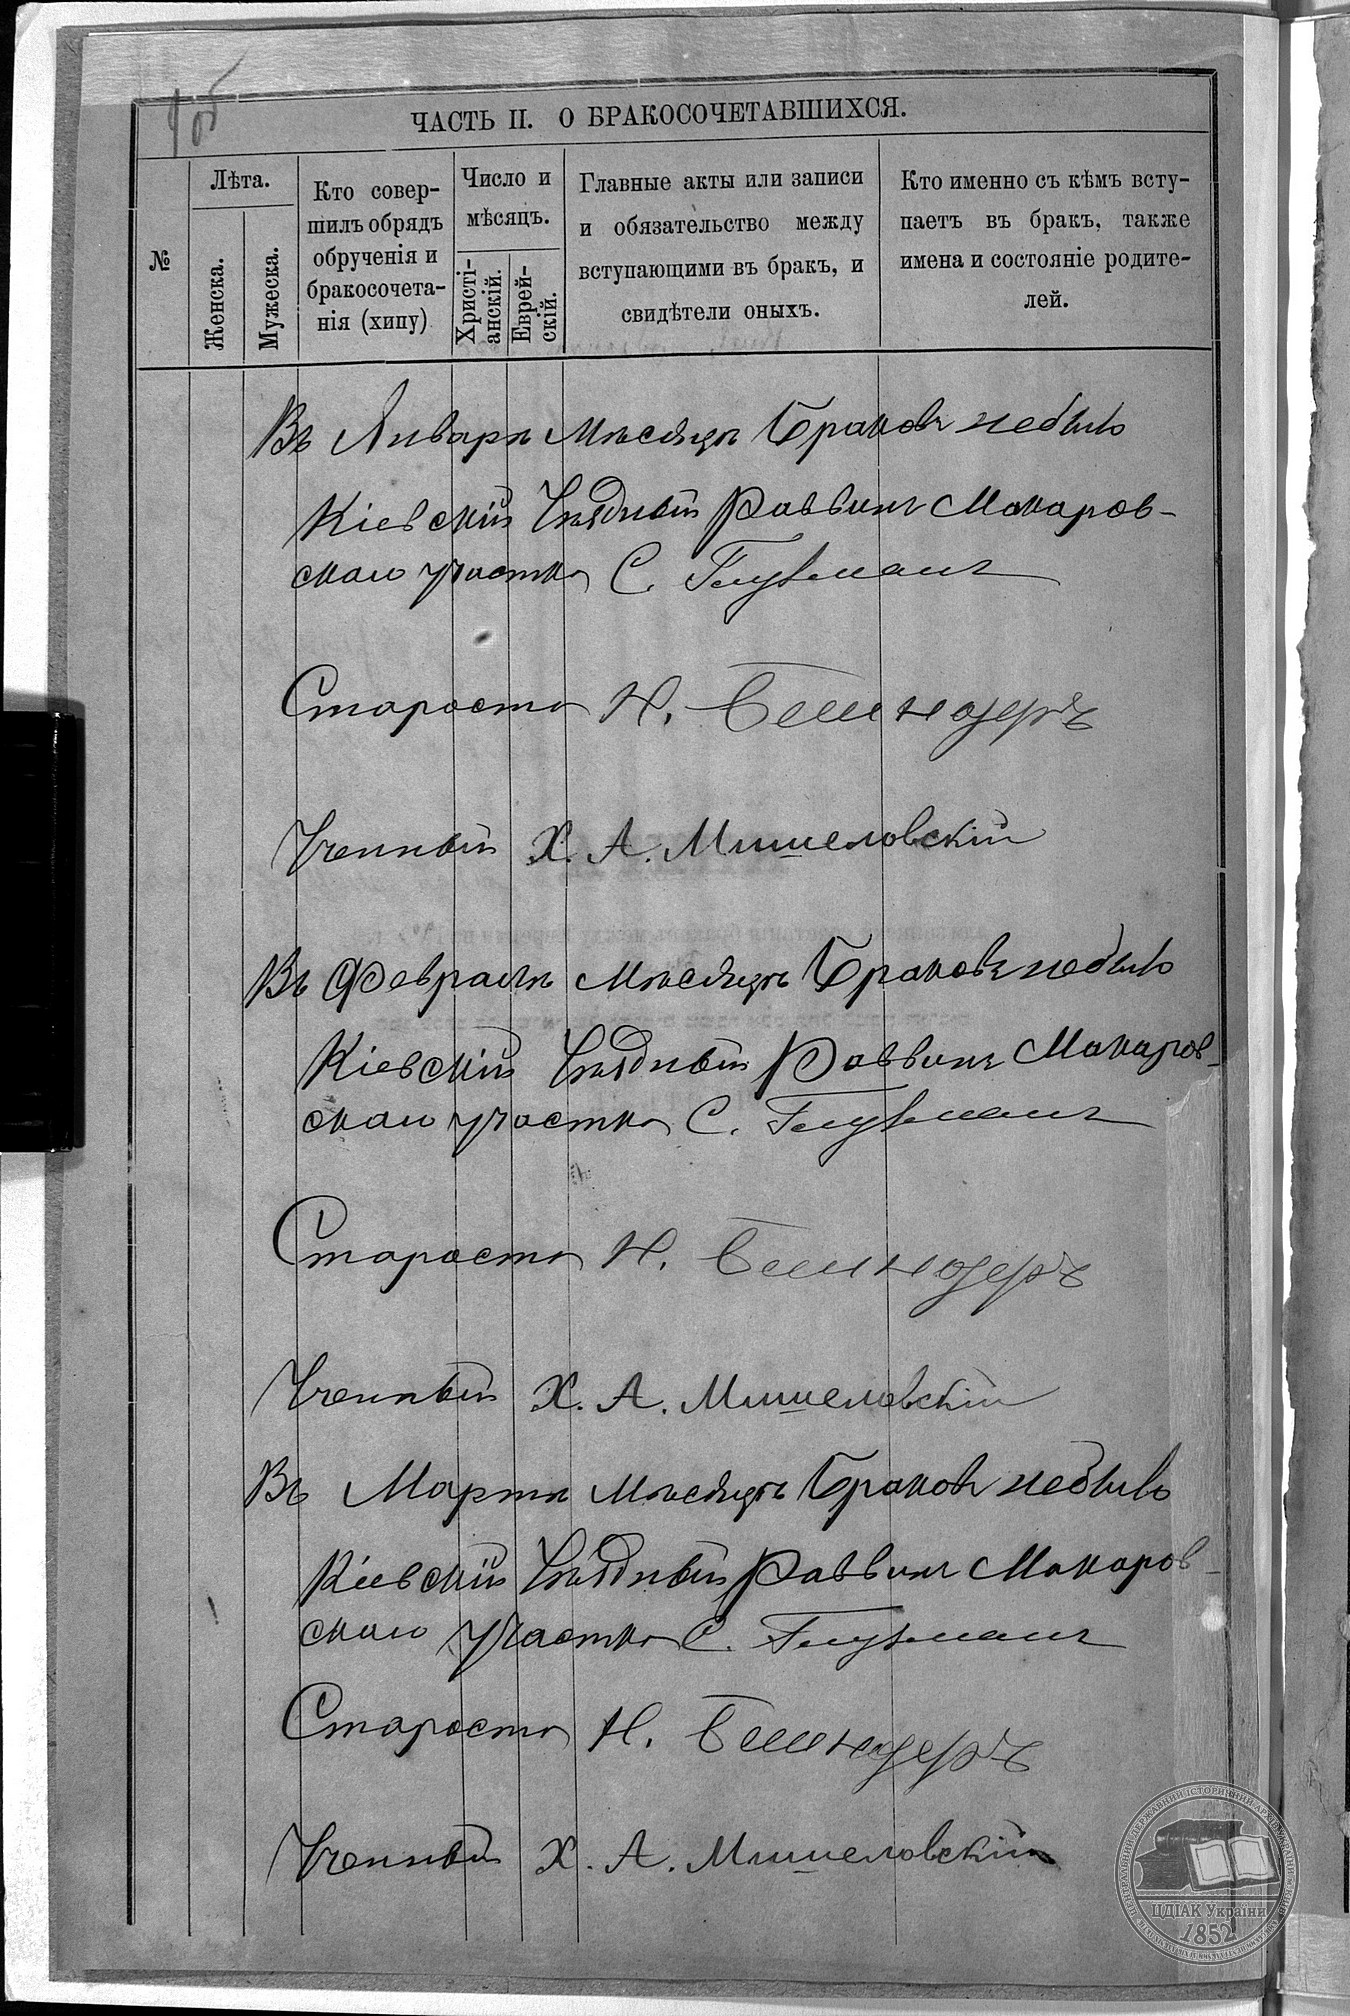 105
ЧАСТЬ II. О БРАКОСОЧЕТАВШИХСЯ.
№
Лѣта.
Женска.
Мужеска.
Кто совер-
шилъ обрядъ
обрученія и
бракосочета-
нія (хипу)
Число и
мѣсяцъ.
Христі-
анскій.
Еврей-
скій.
Главные акты или записи
и обязательство между
вступающими въ бракъ, и
свидѣтели оныхъ.
Кто именно съ кѣмъ всту-
паетъ въ бракъ, также
имена и состояніе родите-
лей.
Въ Январѣ Мѣсяцѣ Браковъ небыло
Кіевскій Уѣздный Раввинъ Макаров-
скаго участка С. Глузманъ
Староста Н.
Ученный Х. А. Мишеловскій
Въ Февралѣ Мѣсяцѣ Браковъ небыло
Кіевскій Уѣздный Раввинъ Макаров-
скаго участка С. Глузманъ
Староста Н.
Ученный Х. А. Мишеловскій
Въ Мартѣ Мѣсяцѣ Браковъ небыло
Кіевскій Уѣздный Раввинъ Макаров-
скаго участка С. Глузманъ
Староста Н.
Ученный Х. А. Мишеловскій
ЦДІАК України
1852